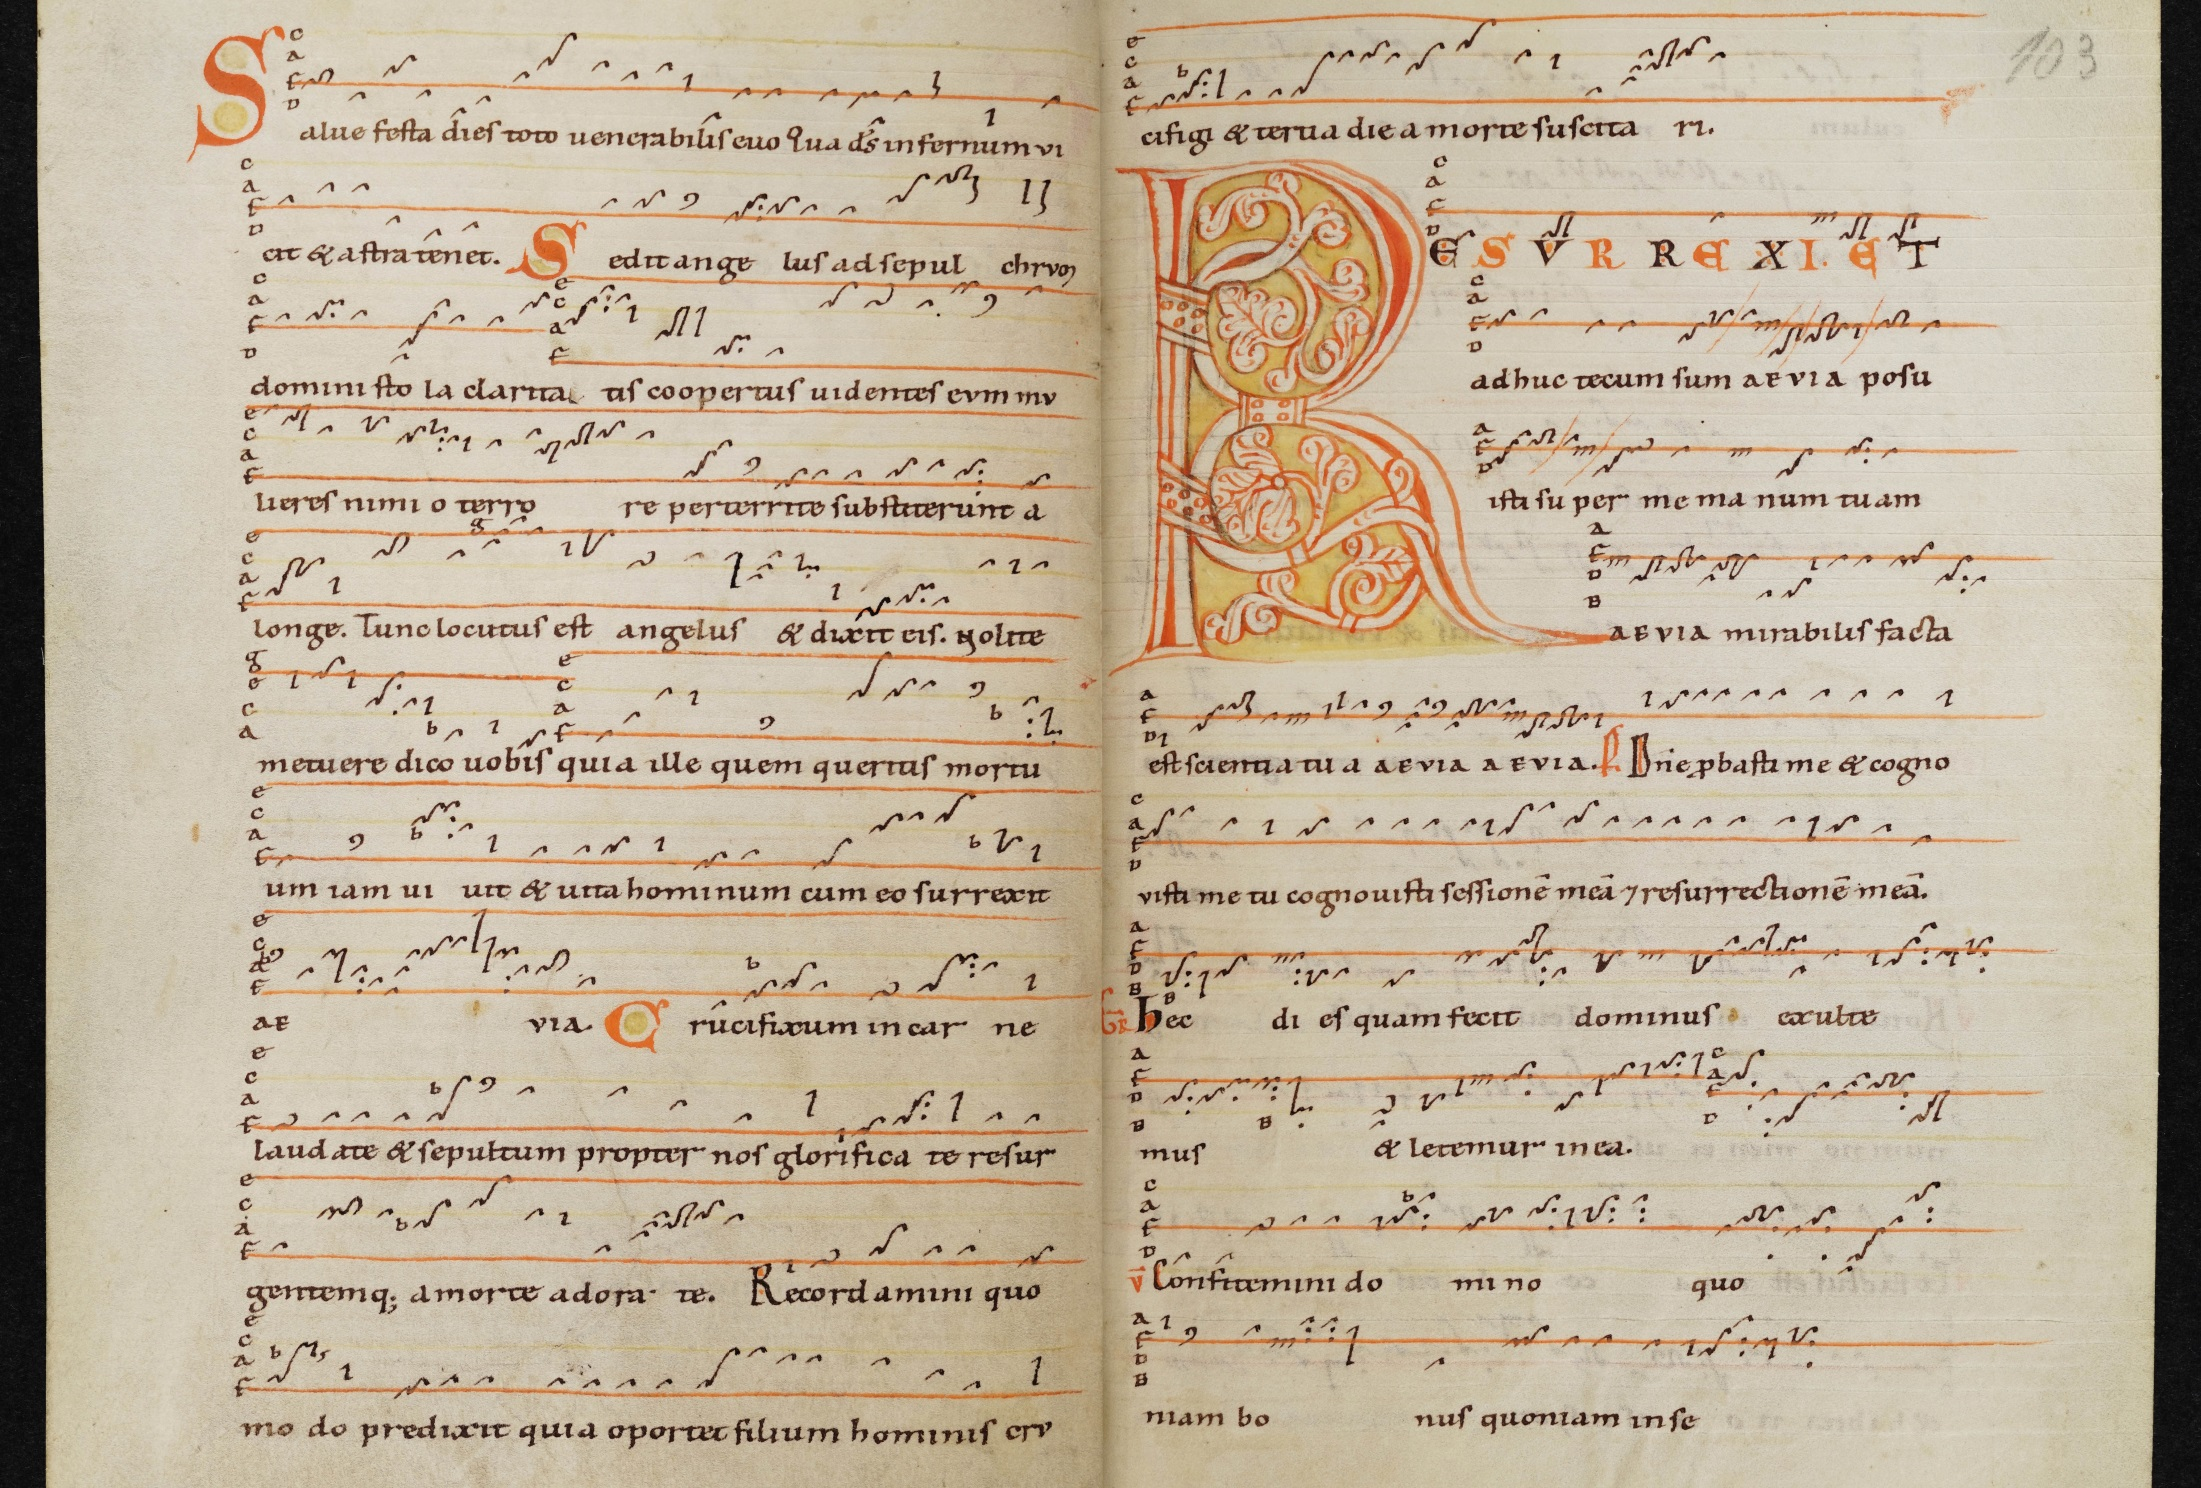 Salue festa dies toto uenerabilis euo Qua ds infernum vi
cit & astra tenet. Sedit ange lus ad sepul chrvm
domini sto la clarita tis coopertus uidentes evm mv
lieres nimi o terro re perterrite substiterunt a
longe. Tunc locutus est angelus & dixit eis. Nolite
metuere dico uobis quia ille quem queritis mortu
um iam ui uit & uita hominum cum eo surrexit
AE VIA. Crucifixum in car ne
laudate & sepultum propter nos glorifica te resur
gentemq; a morte adora te. Recordamini quo
mo do predixit quia oportet filium hominis crv
103
cifigi & tertia die a morte suscita ri.
RESVRREXI. ET
adhuc tecum sum AEVIA posu
isti su per me ma num tuam
AEVIA mirabilis facta
est scientia tu a AEVIA AEVIA. Dne pbasti me & cogno
visti me tu cognouisti sessionē meā 7 resurrectionē meā.
GR Hec di es quam fecit dominus exulte
mus & letemur in ea.
V Confitemini do mi no quo
niam bo nus quoniam in se